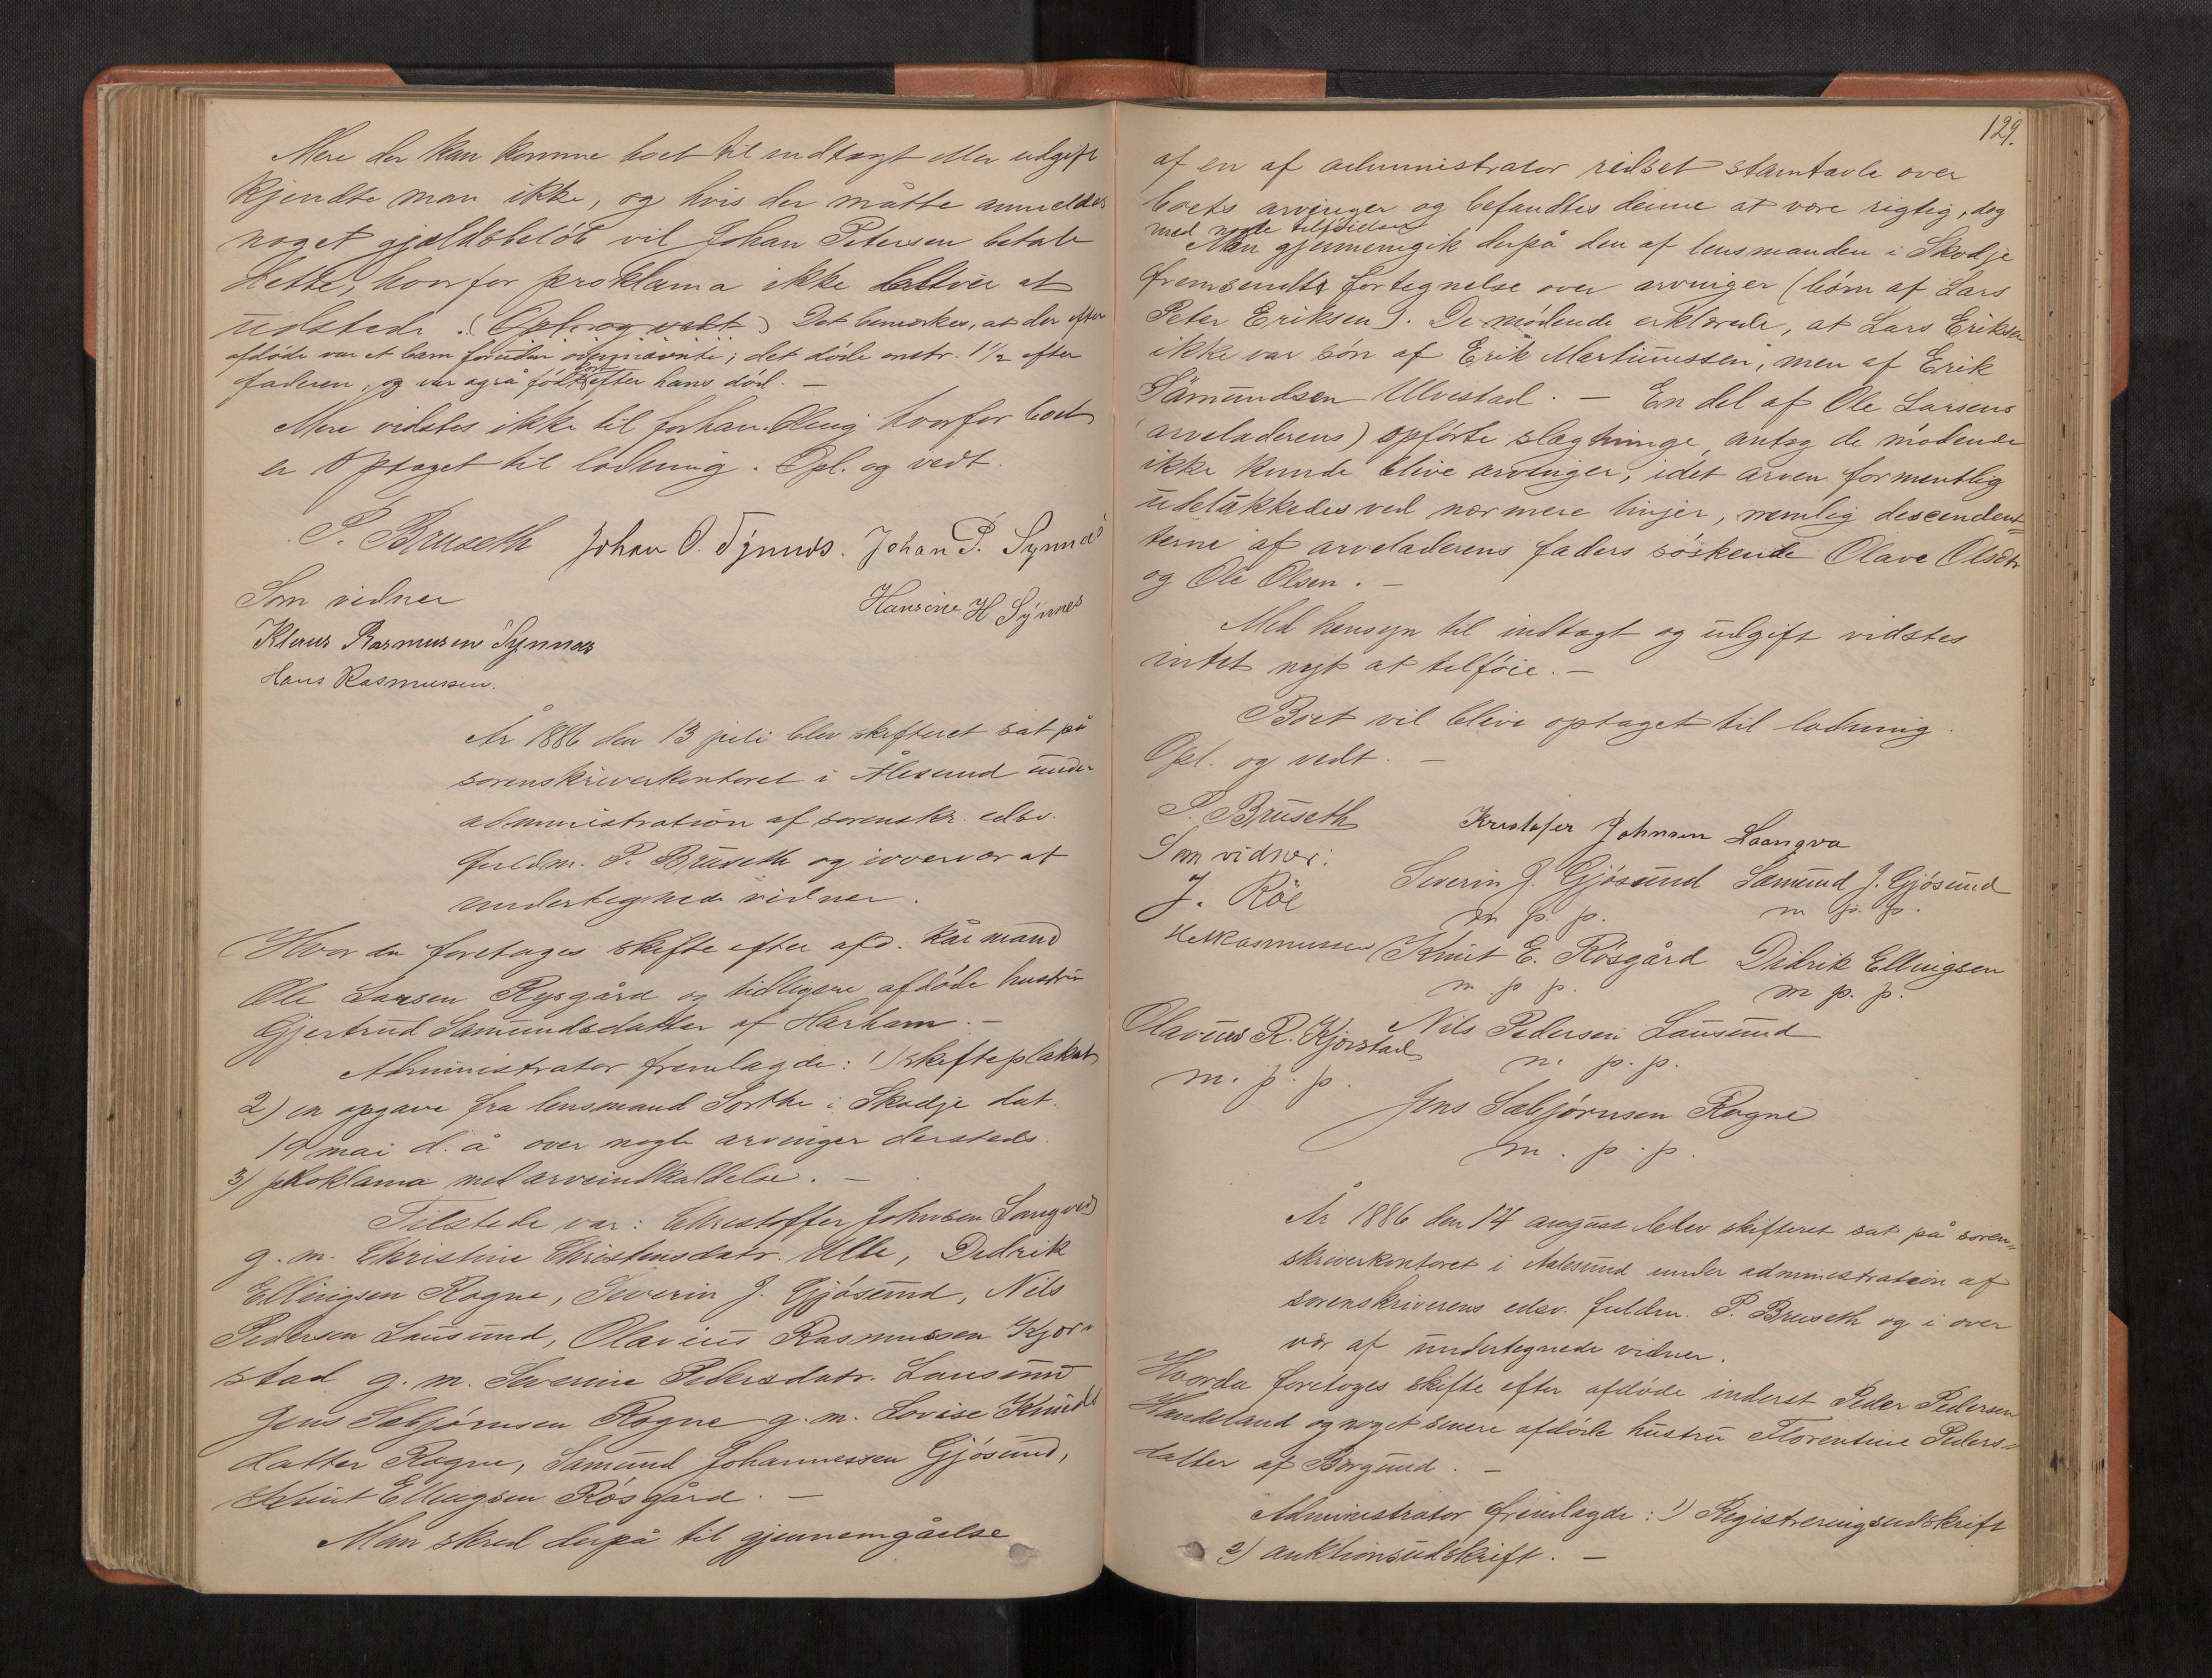 Mere der kan komme boet til indtægt eller udgift
kjendte man ikke, og hvis der måtte anmeldes
noget gjældsbeløb vil Johan Petersen betale
dette, hvorfor proklama ikke bliver at
udstede. (Opl. og vedt) Det bemærkes, at der efter
afdøde var et barn foruden ovennævnte; det døde omtr. 1½ efter
faderen, og var også født efter hans død. —
Mere vidstes ikke til forhandling hvorfor boet
er optaget til lodning. Opl. og vedt.
P. Bruseth Johan O. Synnes. Johan P. Synnes
Som vidner
Hansine H Synnes
Klaus Rasmusen Synnes
Hans Rasmussen.
År 1886 den 13 juli blev skifteret sat på
sorenskriverkontoret i Ålesund under
administration af sorenskr. edsv.
fuldm. P. Bruseth og iovervær af
undertegnede vidner.
Hvor da foretages skifte efter afd. kårmand
Ole Larsen Rysgård og tidligere afdøde hustru
Gjertrud Samundsdatter af Harham. —
Administrator fremlagde: 1) skifteplakat
2) en opgave fra lensmand Sorthe i Skodje dat.
19 mai d. å over nogle arvinger dersteds.
3) proklama med arveindkaldelse. —
Tilstede var: Christoffer Johnsen Langva
g. m. Christine Christensdatr. Ulle, Dedrik
Ellingsen Rogne, Severin J. Gjøsund, Nils
Pedersen Lausund, Olavius Rasmussen Kjør-
stad g. m. Severine Pedersdatr. Lausund
Jens Sæbjørnsen Rogne g. m. Lovise Knuds
datter Rogne, Samund Johannessen Gjøsund,
Knut Ellingsen Røsgård. —
Man skred derpå til gjennemgåelse
129.
af en af administrator ridset stamtavle over
boets arvinger og befandtes denne at være rigtig, dog
med nogle tilføielser
Man gjennemgik derpå den af lensmanden i Skodje
fremsendte fortegnelse over arvinger (børn af Lars
Peter Eriksen). De mødende erklærede, at Lars Eriksen
ikke var søn af Erik Martinussen, men af Erik
Sämundsen Ulvestad. — En del af Ole Larsens
(arveladerens) opførte slægtninge antog de mødende
ikke kunde blive arvinger, idet arven formentlig
udelukkedes ved nærmere linjer, nemlig descenden-
terne af arveladerens faders søskende Olave Olsdtr
og Ole Olsen. —
Med hensyn til indtægt og udgift vidstes
intet nyt at tilføie. —
Boet vil blive optaget til lodning.
Opl. og vedt. —
P. Bruseth Kristofer Johnsen Laangva
Som vidner:
Severin J. Gjøsund Samund J. Gjøsund
J. Röe m p. p. m p. p.
H Rasmussen Knut E. Røsgård Didrik Ellingsen
m. p p. m p. p.
Olavius R. Kjørstad Nils Pedersen Lausund
m. p. p. m. p. p.
Jens Sæbjørnsen Rogne
m. p. p.
År 1886 den 14 august blev skifteret sat på soren-
skriverkontoret i Aalesund under administration af
sorenskriverens edsv. fuldm. P. Bruseth og i over
vær af undertegnede vidner.
Hvorda foretoges skifte efter afdøde inderst Peder Pedersen
Handeland og noget senere afdøde hustru Florentine Peders-
datter af Borgund. —
Administrator fremlagde: 1) Registreringsudskrift
2) auktionsudskrift. —